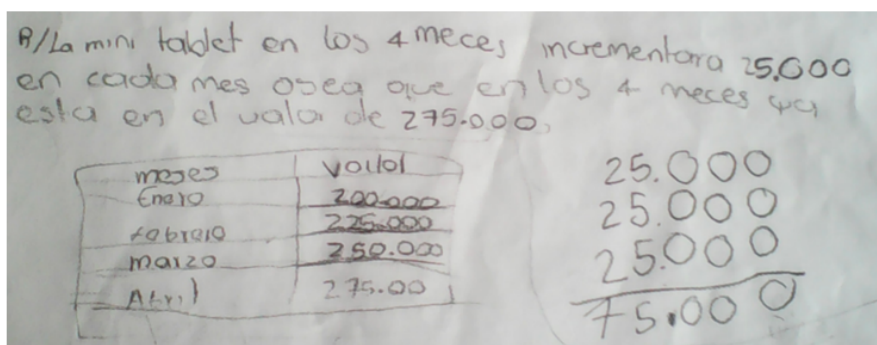 R/La mini tablet en los 4 meces incrementara 25.000
en cada mes osea que en los 4 meces ya
esta en el valor de 275.000,
meses Vallol
Enero 200.000
febrero 225.000
marzo 250.000
Abril 275.00
25.000
25.000
25.000
75.000